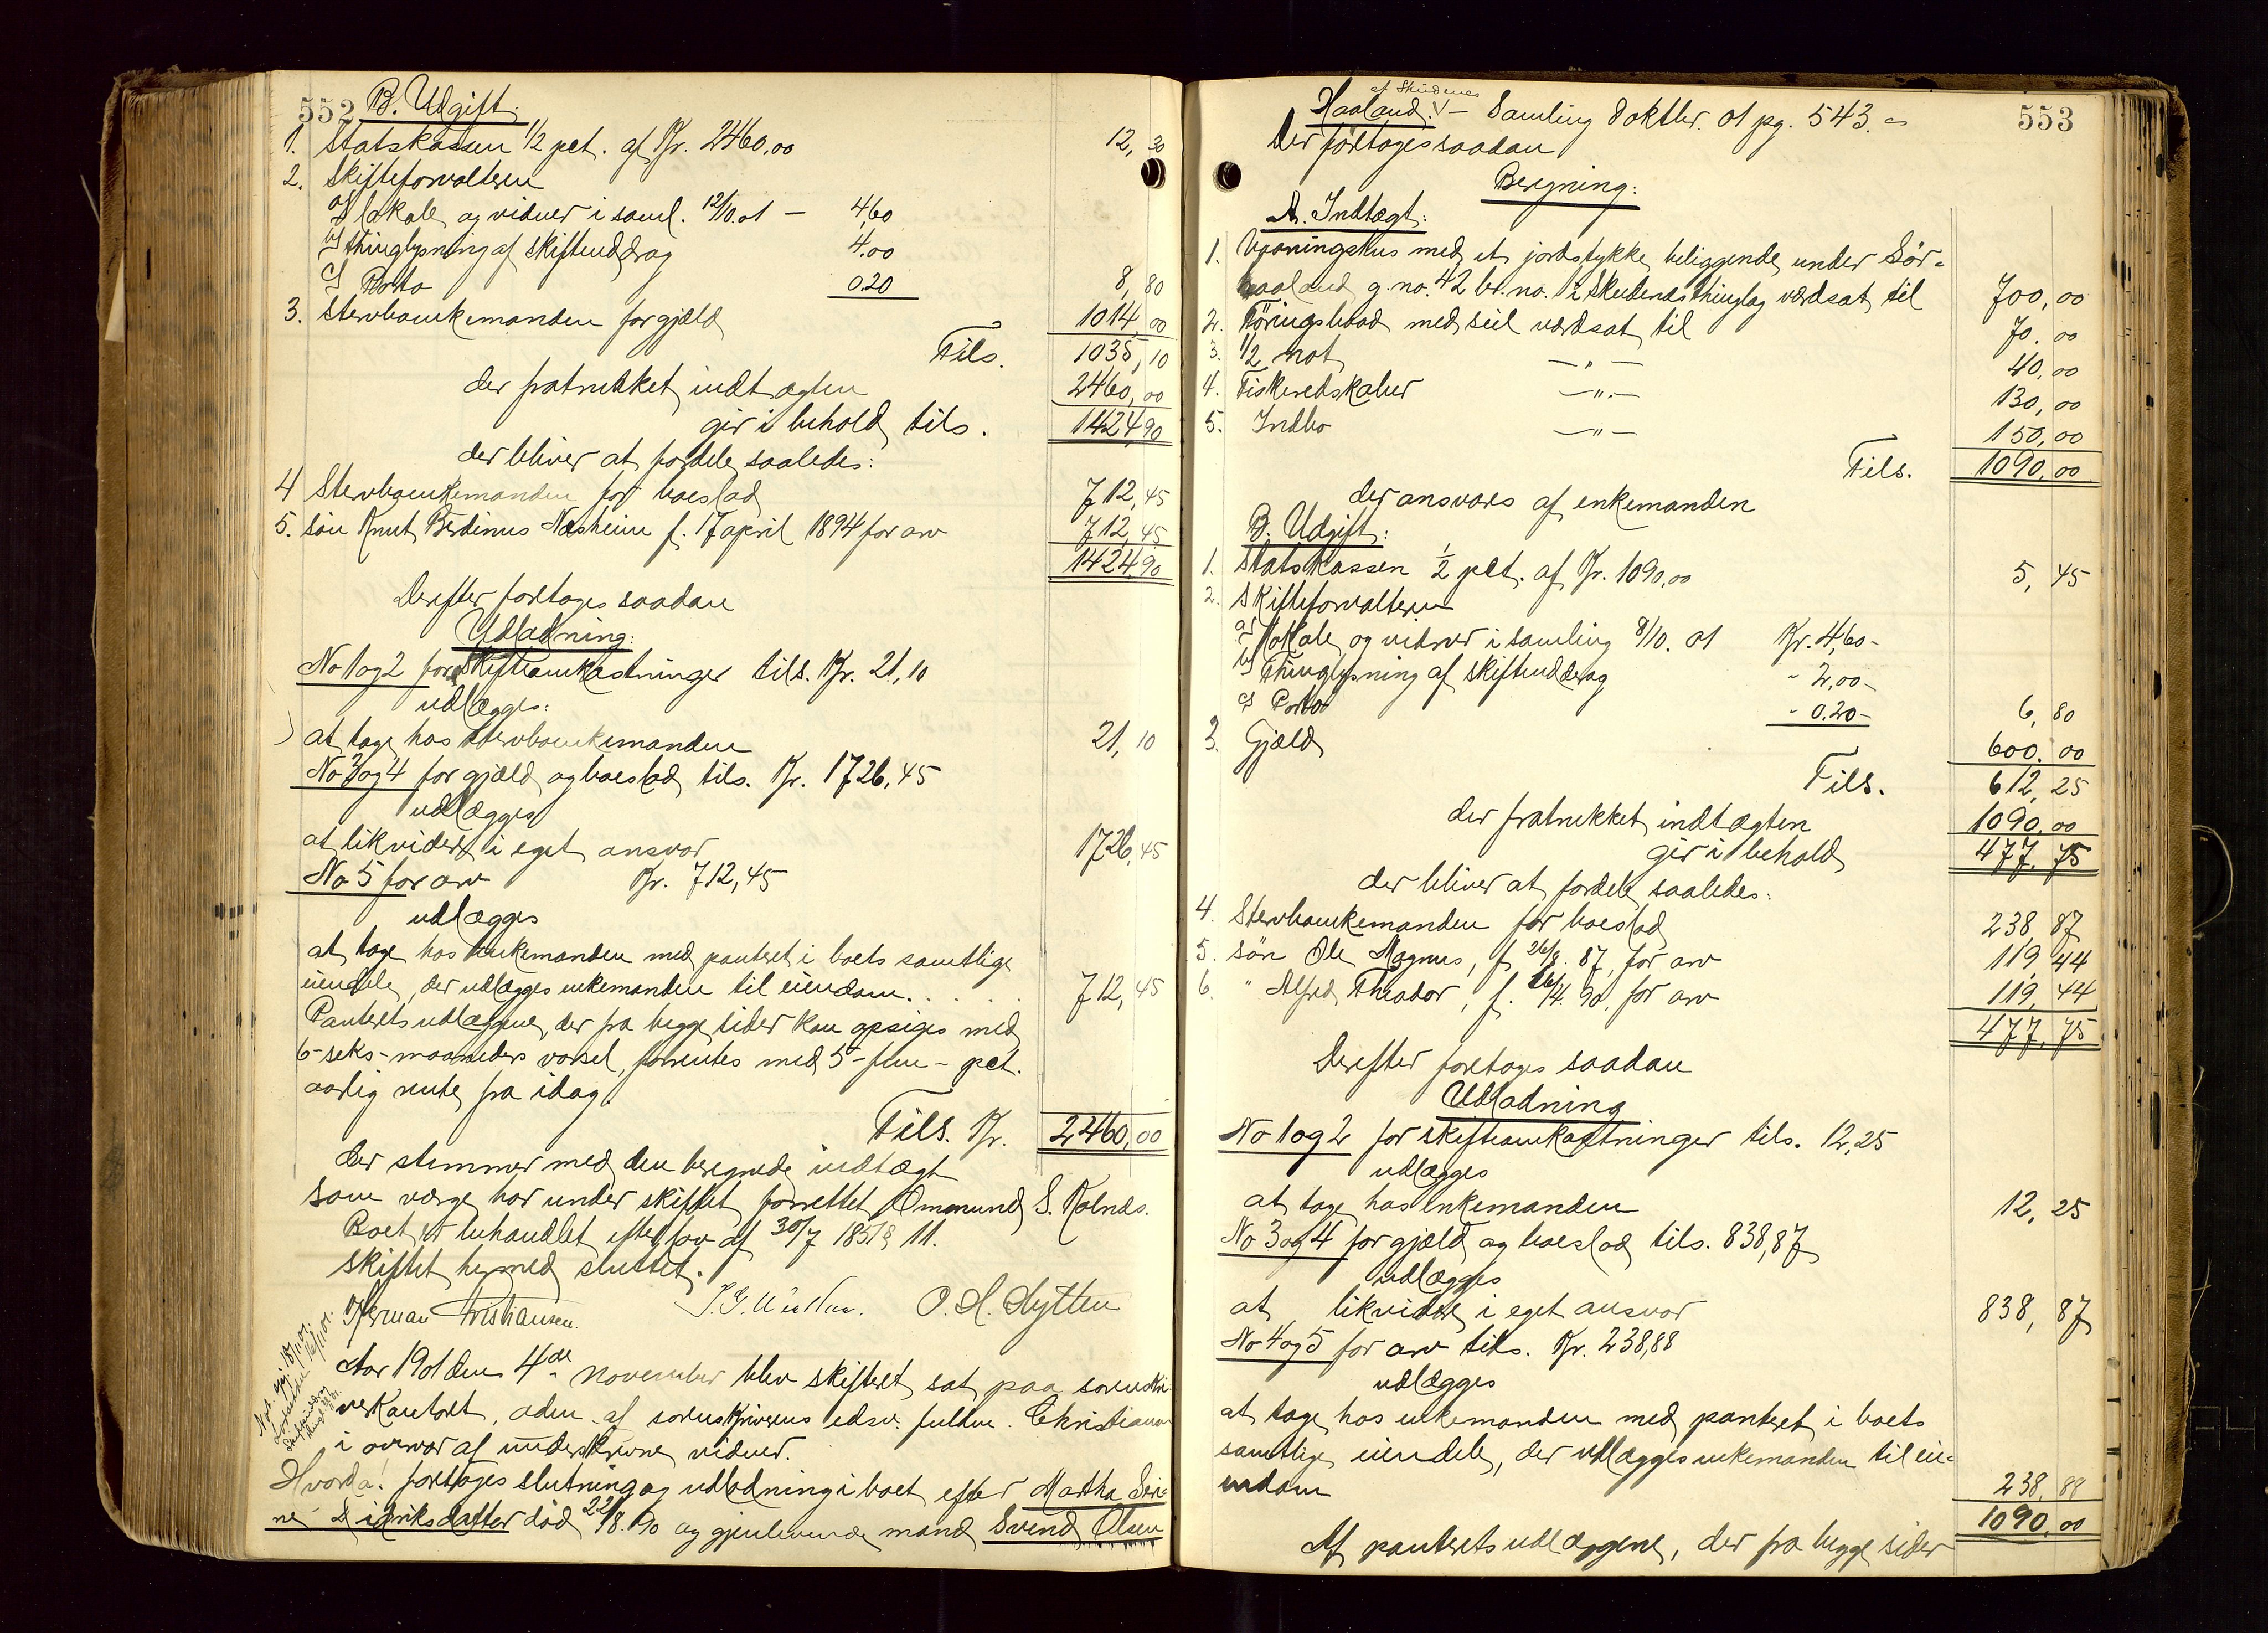 552 B. Udgift.
1. Statskassen 1/2 pct. af Kr. 2460,00 12,30
2. Skifteforvalteren
a) lokale og vidner i saml. 12/10.01 – 4,60
b) thinglysning af skifteuddrag 4.00
c) Porto 0.20 8,80
3. Stervboenkemanden for gjæld 1014,00
Tils. 1035,10
der fratrukket indtægten 2460,00
gir i behold tils. 1424,90
der bliver at fordele saaledes:
4 Stervboenkemanden for boeslod 712,45
5. søn Knut Berdinus Næsheim f. 17 april 1894 for arv 712,45
1424,90
Derefter foretages saadan
Udlodning:
No 1 og 2 for skifteomkostninger tils. Kr. 21,10
udlægges:
at tage hos stervboenkemanden 21,10
No 3 og 4 for gjæld og boeslod tils. Kr. 1726,45
udlægges
at likvidere i eget ansvar 1726,45
No 5 for arv Kr. 712,45
udlægges
at tage hos enkemanden med panteret i boets samtlige
eiendele, der udlægges enkemanden til eiendom. . . . . 712,45
Panteretsudlæggene, der fra begge sider kan opsiges med
6-seks-maaneders varsel, forrentes med 5-fem- pct.
aarlig rente fra idag.
Tils. Kr. 2460,00
der stemmer med den beregnede indtægt
Som værge har under skiftet forrettet Ommund S. Kolnes.
Boet er behandlet efter lov af 30/7 1851 § 11.
Skiftet hermed sluttet.
Herman Christiansen. O. H. Lytten
Aar 1901 den 4de november blev skifteret sat paa sorenskri-
verkontoret, aden. af sorenskriverens edsv. fuldm. Christiansen
i overvær af underskrevne vidner.
Hvorda: foretages slutning og udlodning i boet efter Martha Seri-
ne Didriksdatter død 22/8.90 og gjenlevende mand Svend Olsen
553
af Skudenes
Haaland. V – Samling 8 oktbr. 01 pg. 543. –
Der foretages saadan
Beregning:
A. Indtægt:
1. Vaaningshus med et jordstykke beliggende under Sør-
haaland g.no. 42 br.no. i Skudenes thinglag værdsat til 700,00
2. Føringsbaad med seil værdsat til 70.00
3. 1/2 not —„— 40,00
4. Fiskeredskaber —„— 130,00
5. Indbo —„— 150,00
Tils. 1090,00
der ansvares af enkemanden
B. Udgift:
1. Statskassen 1/2 pct. af Kr. 1090,00 5,45
2. Skifteforvalteren
a) lokale og vidner i samling 8/10. 01 Kr. 4,60-
b) Thinglysning af skifteuddrag „ 2,00-
c) Porto „ 0.20- 6,80
3. Gjæld 600.00
Tils. 612,25
der fratrukket indtægten 1090.00
gir i behold 477,75
der bliver at fordele saaledes:
4. Stervboenkemanden for boeslod 238,87
5. søn Ole Magnus, f. 26/8. 87, for arv 119,44
6. „ Alfred Theodor, f. 16/4. 90. for arv 119,44
477,75
Derefter foretages saadan
Udlodning
No 1 og 2 for skifteomkostninger tils. 12,25
udlægges
at tage hos enkemanden 12,25
No 3 og 4 for gjæld og boeslod tils. 838,87
udlægges
at likvidere i eget ansvar 838,87
No 4 og 5 for arv tils. Kr. 238,88
udlægges
at tage hos enkemanden med panteret i boets
samtlige eiendele, der udlægges enkemanden til ei-
endom 238,88
1090,00
Af panteretsudlæggene, der fra begge sider